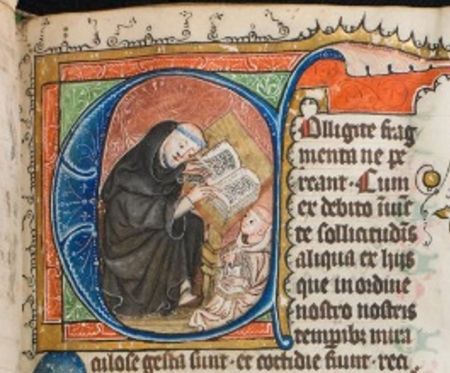 COlligite frag
menta ne pe
reant. Cum
ex debito iniūc
te sollicitudīs
aliqua ex hijs
que in ordine
nostro nostris
temꝑibꝫ mira
culose gesta sunt. et cottidie fiunt. reci